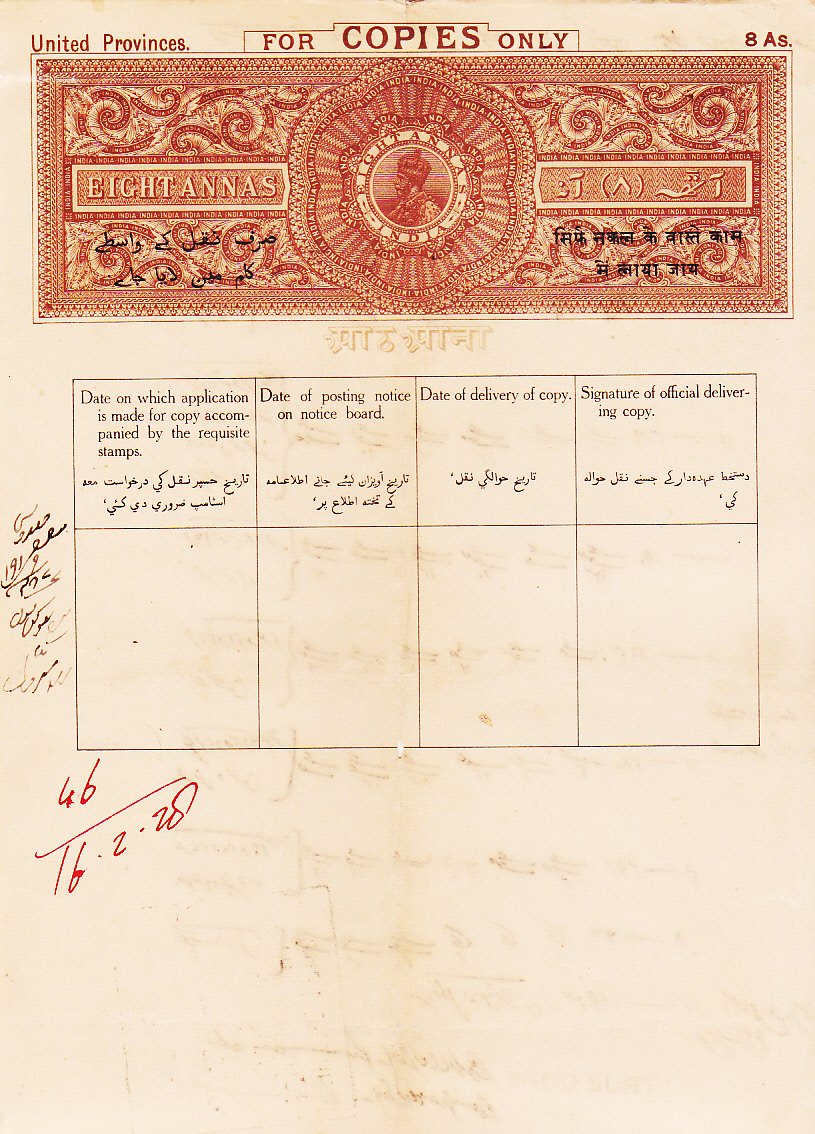 United Provinces. FOR COPIES ONLY 8 As.
EIGHT ANNAS
EIGHT ANNAS
INDIA
آٹھ (۸) آنہ
صرف نقل کے واسطے
کام مین لایا جاے
सिर्फ़ नकल के वास्ते काम
में लाया जाय
आठ आना
Date on which application
is made for copy accom-
panied by the requisite
stamps.
تاریخ جسپر نقل کي درخواست معه
اسٹامپ ضروري دي گئي،
Date of posting notice
on notice board.
تاریخ آویزان کیئے جانے اطلاعنامه
کے تخته اطلاع پر،
Date of delivery of copy.
تاریخ حوالگي نقل،
Signature of official deliver-
ing copy.
دستخط عهدہدار کے جسنے نقل حواله
کي،
46
16.2.28